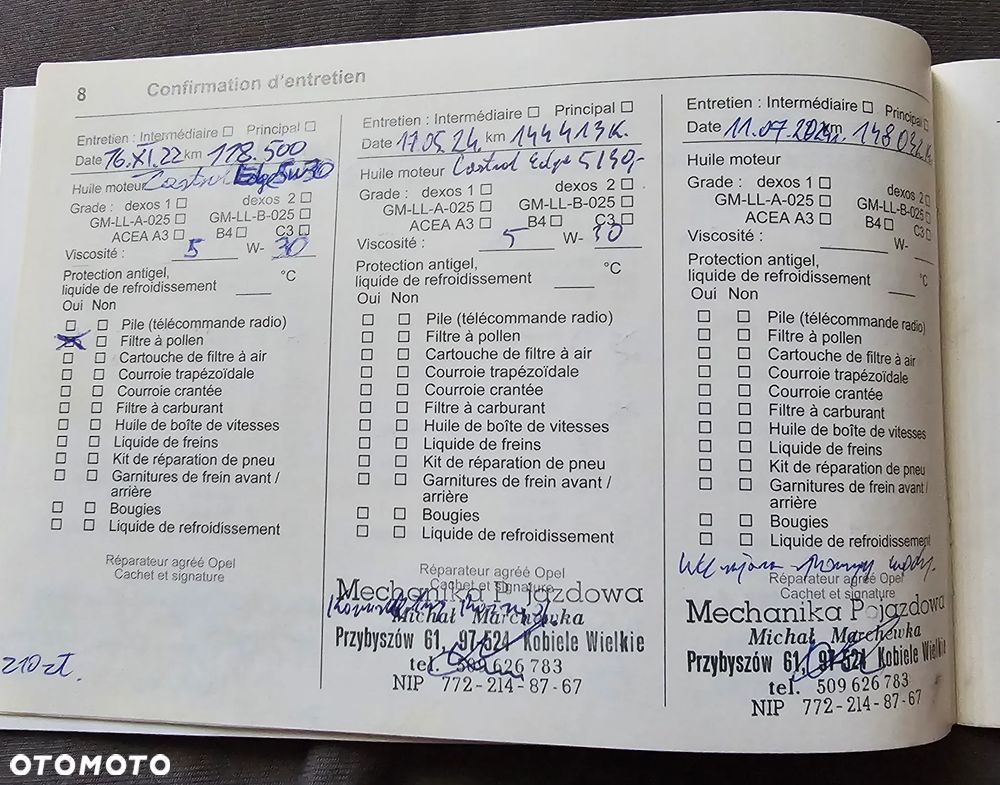 8 Confirmation d'entretien
Entretien : Intermédiaire ☐ Principal ☐
Date 16.XI.22 km 118.500
Huile moteur Castrol Edge 5W30
Grade : dexos 1 ☐ dexos 2 ☐
GM-LL-A-025 ☐ GM-LL-B-025 ☐
ACEA A3 ☐ B4 ☐ C3 ☐
Viscosité : 5 W- 30
Protection antigel,
liquide de refroidissement ____ °C
Oui Non
☐ ☐ Pile (télécommande radio)
☒ ☐ Filtre à pollen
☐ ☐ Cartouche de filtre à air
☐ ☐ Courroie trapézoïdale
☐ ☐ Courroie crantée
☐ ☐ Filtre à carburant
☐ ☐ Huile de boîte de vitesses
☐ ☐ Liquide de freins
☐ ☐ Kit de réparation de pneu
☐ ☐ Garnitures de frein avant /
arrière
☐ ☐ Bougies
☐ ☐ Liquide de refroidissement
Réparateur agréé Opel
Cachet et signature
210 zł.
Entretien : Intermédiaire ☐ Principal ☐
Date 17.05.24 km 144413 K.
Huile moteur Castrol Edge
Grade : dexos 1 ☐ dexos 2 ☐
GM-LL-A-025 ☐ GM-LL-B-025 ☐
ACEA A3 ☐ B4 ☐ C3 ☐
Viscosité : 5 W-
Protection antigel,
liquide de refroidissement ____ °C
Oui Non
☐ ☐ Pile (télécommande radio)
☐ ☐ Filtre à pollen
☐ ☐ Cartouche de filtre à air
☐ ☐ Courroie trapézoïdale
☐ ☐ Courroie crantée
☐ ☐ Filtre à carburant
☐ ☐ Huile de boîte de vitesses
☐ ☐ Liquide de freins
☐ ☐ Kit de réparation de pneu
☐ ☐ Garnitures de frein avant /
arrière
☐ ☐ Bougies
☐ ☐ Liquide de refroidissement
Réparateur agréé Opel
Cachet et signature
Mechanika Pojazdowa
Michał Marchewka
Przybyszów 61, 97-524 Kobiele Wielkie
tel. 509 626 783
NIP 772-214-87-67
Entretien : Intermédiaire ☐ Principal ☐
Date 11.07.2024r. km 148032 K.
Huile moteur
Grade : dexos 1 ☐ dexos 2 ☐
GM-LL-A-025 ☐ GM-LL-B-025 ☐
ACEA A3 ☐ B4 ☐ C3 ☐
Viscosité : ____ W-
Protection antigel,
liquide de refroidissement ____ °C
Oui Non
☐ ☐ Pile (télécommande radio)
☐ ☐ Filtre à pollen
☐ ☐ Cartouche de filtre à air
☐ ☐ Courroie trapézoïdale
☐ ☐ Courroie crantée
☐ ☐ Filtre à carburant
☐ ☐ Huile de boîte de vitesses
☐ ☐ Liquide de freins
☐ ☐ Kit de réparation de pneu
☐ ☐ Garnitures de frein avant /
arrière
☐ ☐ Bougies
☐ ☐ Liquide de refroidissement
pompy wody.
Réparateur agréé Opel
Cachet et signature
Mechanika Pojazdowa
Michał Marchewka
Przybyszów 61, 97-524 Kobiele Wielkie
tel. 509 626 783
NIP 772-214-87-67
OTOMOTO